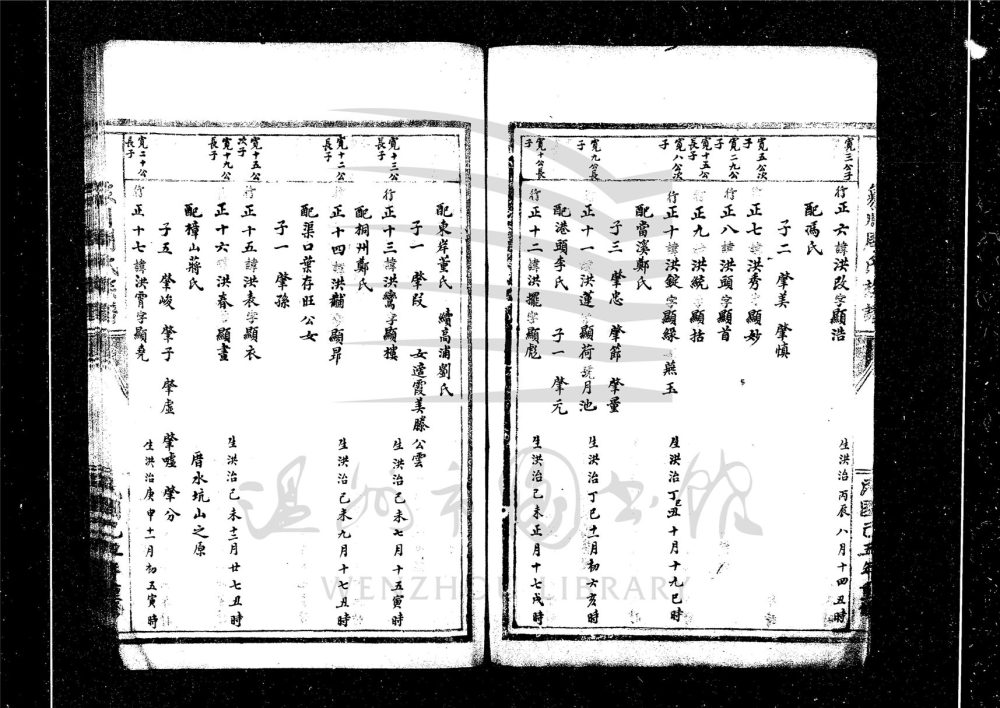 寬三公子
行正六諱洪改字顯浩
生洪治丙辰八月十四丑時
配馮氏
子二 肇美 肇慎
寬五公次
正七諱洪秀字顯妙
寬二九公子
行正八諱洪頭字顯首
寬十五公長子
正九諱洪統字顯括
寬八公次子
行正十諱洪錠字顯綠 燕玉
生洪治丁丑十月十九巳時
配當溪鄭氏
子三 肇忠 肇節 肇量
寬九公長子
正十一諱洪運字顯荷號月池
生洪治丁巳十二月初六亥時
配港頭李氏 子一 肇元
寬十公長子
行正十二諱洪擺字顯彪
生洪治己未正月十七戌時
配東岸董氏 續高浦劉氏
子一 肇段 女適霞美滕公雲
寬十三公長子
行正十三諱洪鸞字顯樓
生洪治己未七月十五寅時
配桐州鄭氏
寬十二公長子
正十四諱洪黼字顯昻
生洪治己未九月十七丑時
配渠口葉存旺公女
子一 肇孫
寬十五公次子
行正十五諱洪表字顯衣
寬十九公長子
正十六諱洪春字顯畫
生洪治己未十二月廿七丑時
配樟山蔣氏
厝水坑山之原
子五 肇峻 肇子 肇虛 肇噓 肇分
寬二十公長子
行正十七諱洪霄字顯堯
生洪治庚申十一月初五寅時
溫州市圖書館
WENZHOU LIBRARY